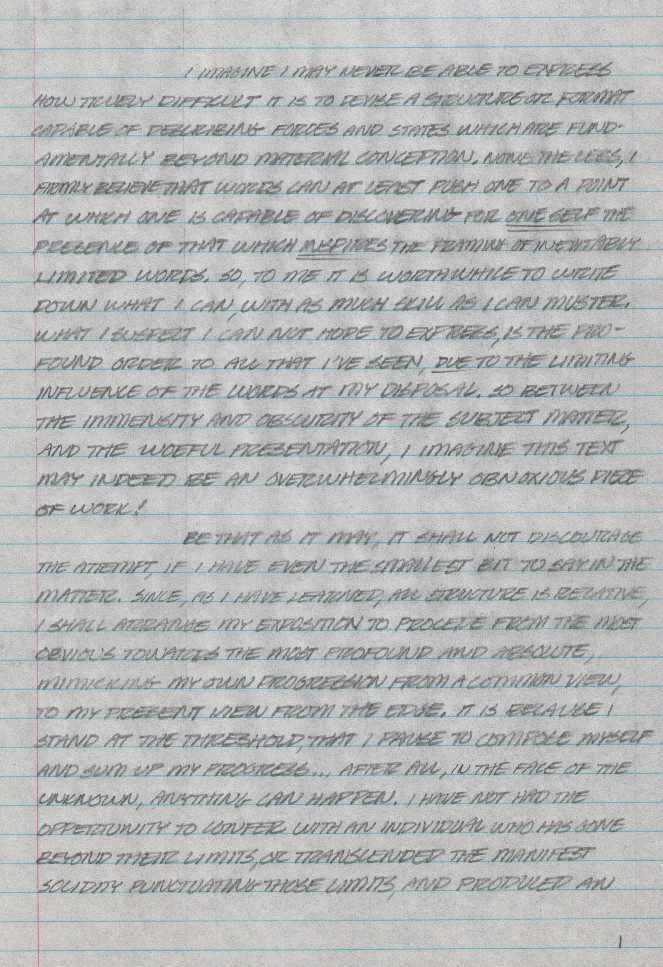 I IMAGINE I MAY NEVER BE ABLE TO EXPRESS
HOW TRUELY DIFFICULT IT IS TO DEVISE A STRUCTURE OR FORMAT
CAPABLE OF DESCRIBING FORCES AND STATES WHICH ARE FUND-
AMENTALLY BEYOND MATERIAL CONCEPTION. NONE THE LESS, I
FIRMLY BELIEVE THAT WORDS CAN AT LEAST PUSH ONE TO A POINT
AT WHICH ONE IS CAPABLE OF DISCOVERING FOR ONE SELF THE
PRESENCE OF THAT WHICH INSPIRES THE FRAMING OF INEVITABLY
LIMITED WORDS. SO, TO ME IT IS WORTHWHILE TO WRITE
DOWN WHAT I CAN, WITH AS MUCH SKILL AS I CAN MUSTER.
WHAT I SUSPECT I CAN NOT HOPE TO EXPRESS, IS THE PRO-
FOUND ORDER TO ALL THAT I'VE SEEN, DUE TO THE LIMITING
INFLUENCE OF THE WORDS AT MY DISPOSAL. SO BETWEEN
THE IMMENSITY AND OBSCURITY OF THE SUBJECT MATTER,
AND THE WOEFUL PRESENTATION, I IMAGINE THIS TEXT
MAY INDEED BE AN OVERWHELMINGLY OBNOXIOUS PIECE
OF WORK!
BE THAT AS IT MAY, IT SHALL NOT DISCOURAGE
THE ATTEMPT, IF I HAVE EVEN THE SMALLEST BIT TO SAY IN THE
MATTER. SINCE, AS I HAVE LEARNED, ALL STRUCTURE IS RELATIVE,
I SHALL ARRANGE MY EXPOSITION TO PROCEDE FROM THE MOST
OBVIOUS TOWARDS THE MOST PROFOUND AND ABSOLUTE,
MIMICKING MY OWN PROGRESSION FROM A COMMON VIEW,
TO MY PRESENT VIEW FROM THE EDGE. IT IS BECAUSE I
STAND AT THE THRESHOLD, THAT I PAUSE TO COMPOSE MYSELF
AND SUM UP MY PROGRESS... AFTER ALL, IN THE FACE OF THE
UNKNOWN, ANYTHING CAN HAPPEN. I HAVE NOT HAD THE
OPPERTUNITY TO CONFER WITH AN INDIVIDUAL WHO HAS GONE
BEYOND THEIR LIMITS, OR TRANSCENDED THE MANIFEST
SOLIDITY PUNCTUATING THOSE LIMITS, AND PRODUCED AN
1